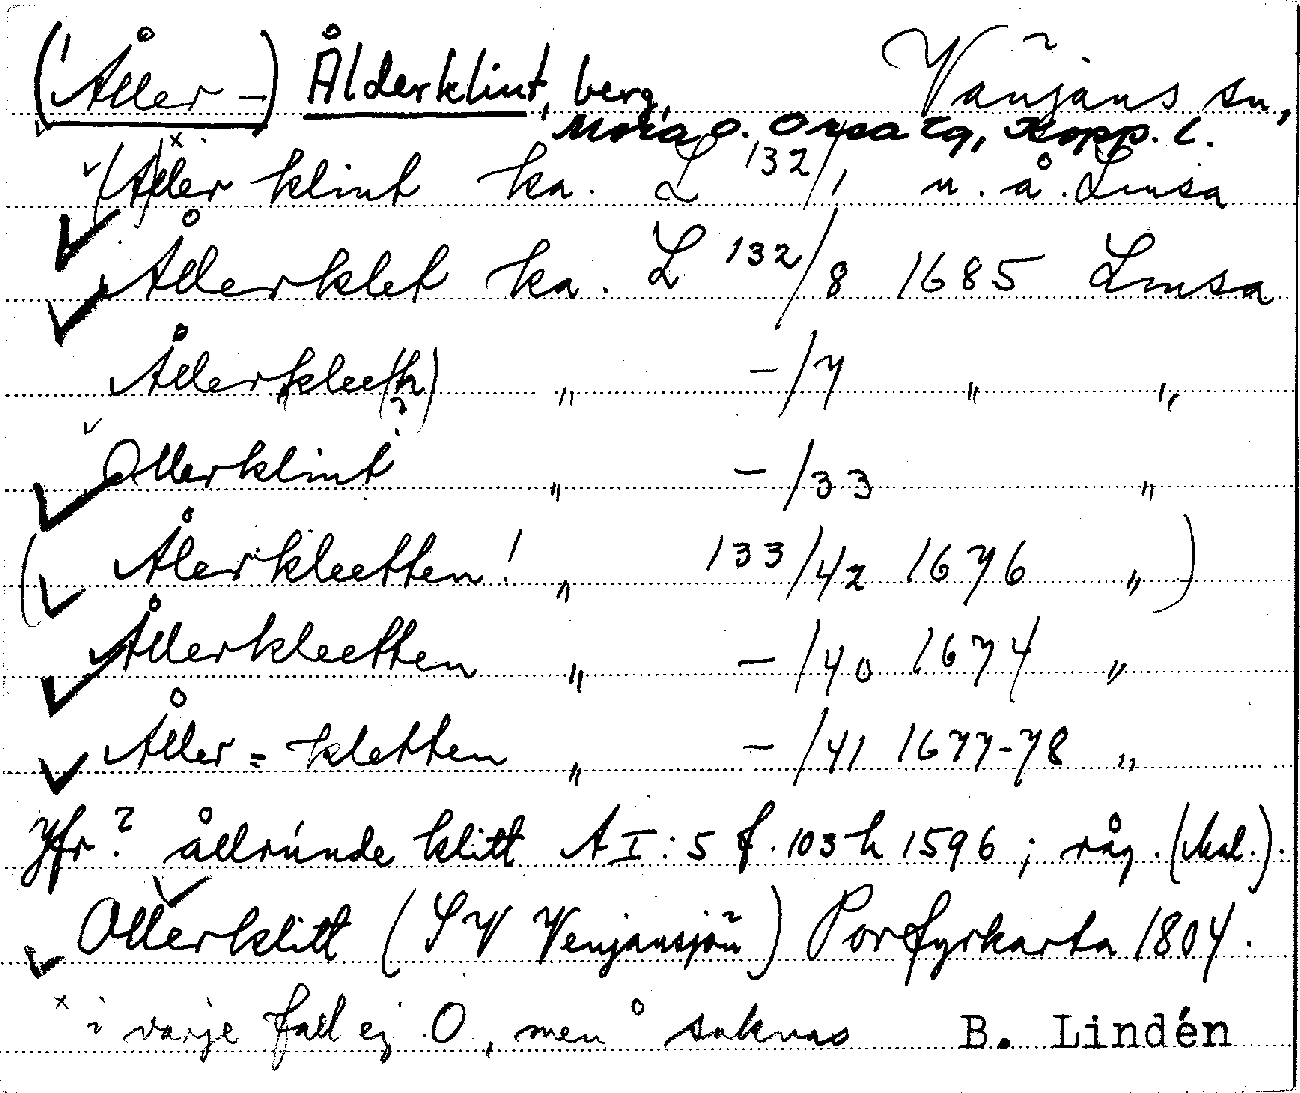 (Åller-) Ålderklint, berg, Vänjans sn,
Mora o. Orsa tg, Kopp. l.
(Å)ller klint ka. L 132/1 u. å. Limsa
Ållerklet ka. L 132/8 1685 Limsa
Ållerklee(h) " -/7 " "
Ollerklint " -/33 "
(Ålerkleetten! " 133/42 1676 ")
Ållerkleetten " -/40 1674 "
Åller=kletten " -/41 1677-78 "
Jfr? ållrúnde klitt A I:5 f. 103 h 1596; råg. (Mal.).
Ollerklitt (SV Venjansjön) Porfyrkarta 1804.
x i varje fall ej O, men ° saknas B. Lindén